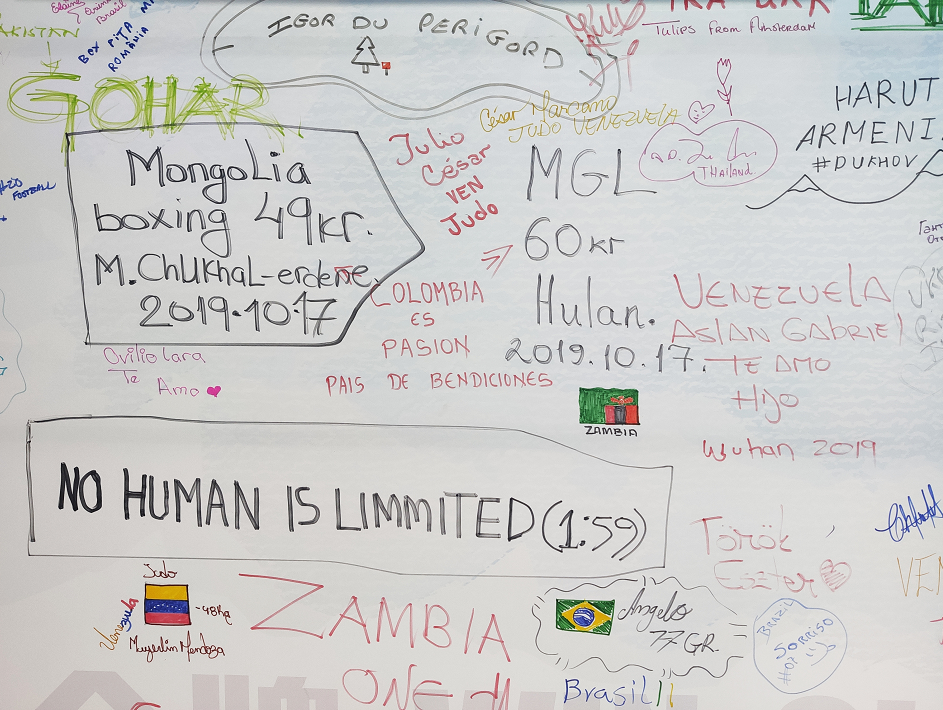 Elaine
Brasil
BOX PIȚA
ROMÂNIA
PAKISTAN
GOHAR
IGOR DU PERIGORD
TULIPS FROM AMSTERDAM
César Marcano
JUDO VENEZUELA
Julio
César
VEN
Judo
HARUT
ARMENI
#DUKHOV
THAILAND
FOOTBALL
Mongolia
boxing 49kr.
M.Chukhal-erdene.
2019.10.17
MGL
60kr
Hulan.
2019.10.17.
COLOMBIA
ES
PASION
PAIS DE BENDICIONES
VENEZUELA
ASLAN GABRIEL
TE AMO
HIJO
Wuhan 2019
Ovilio Lara
Te
Amo
ZAMBIA
NO HUMAN IS LIMMITED (1:59)
Török
Eszter
VEN
Judo
Venezuela
-48Kg
Mayerlin Mendoza
ZAMBIA
ONE
Angelo
77 GR.
Brasil
BRAZIL
SORRISO
#07